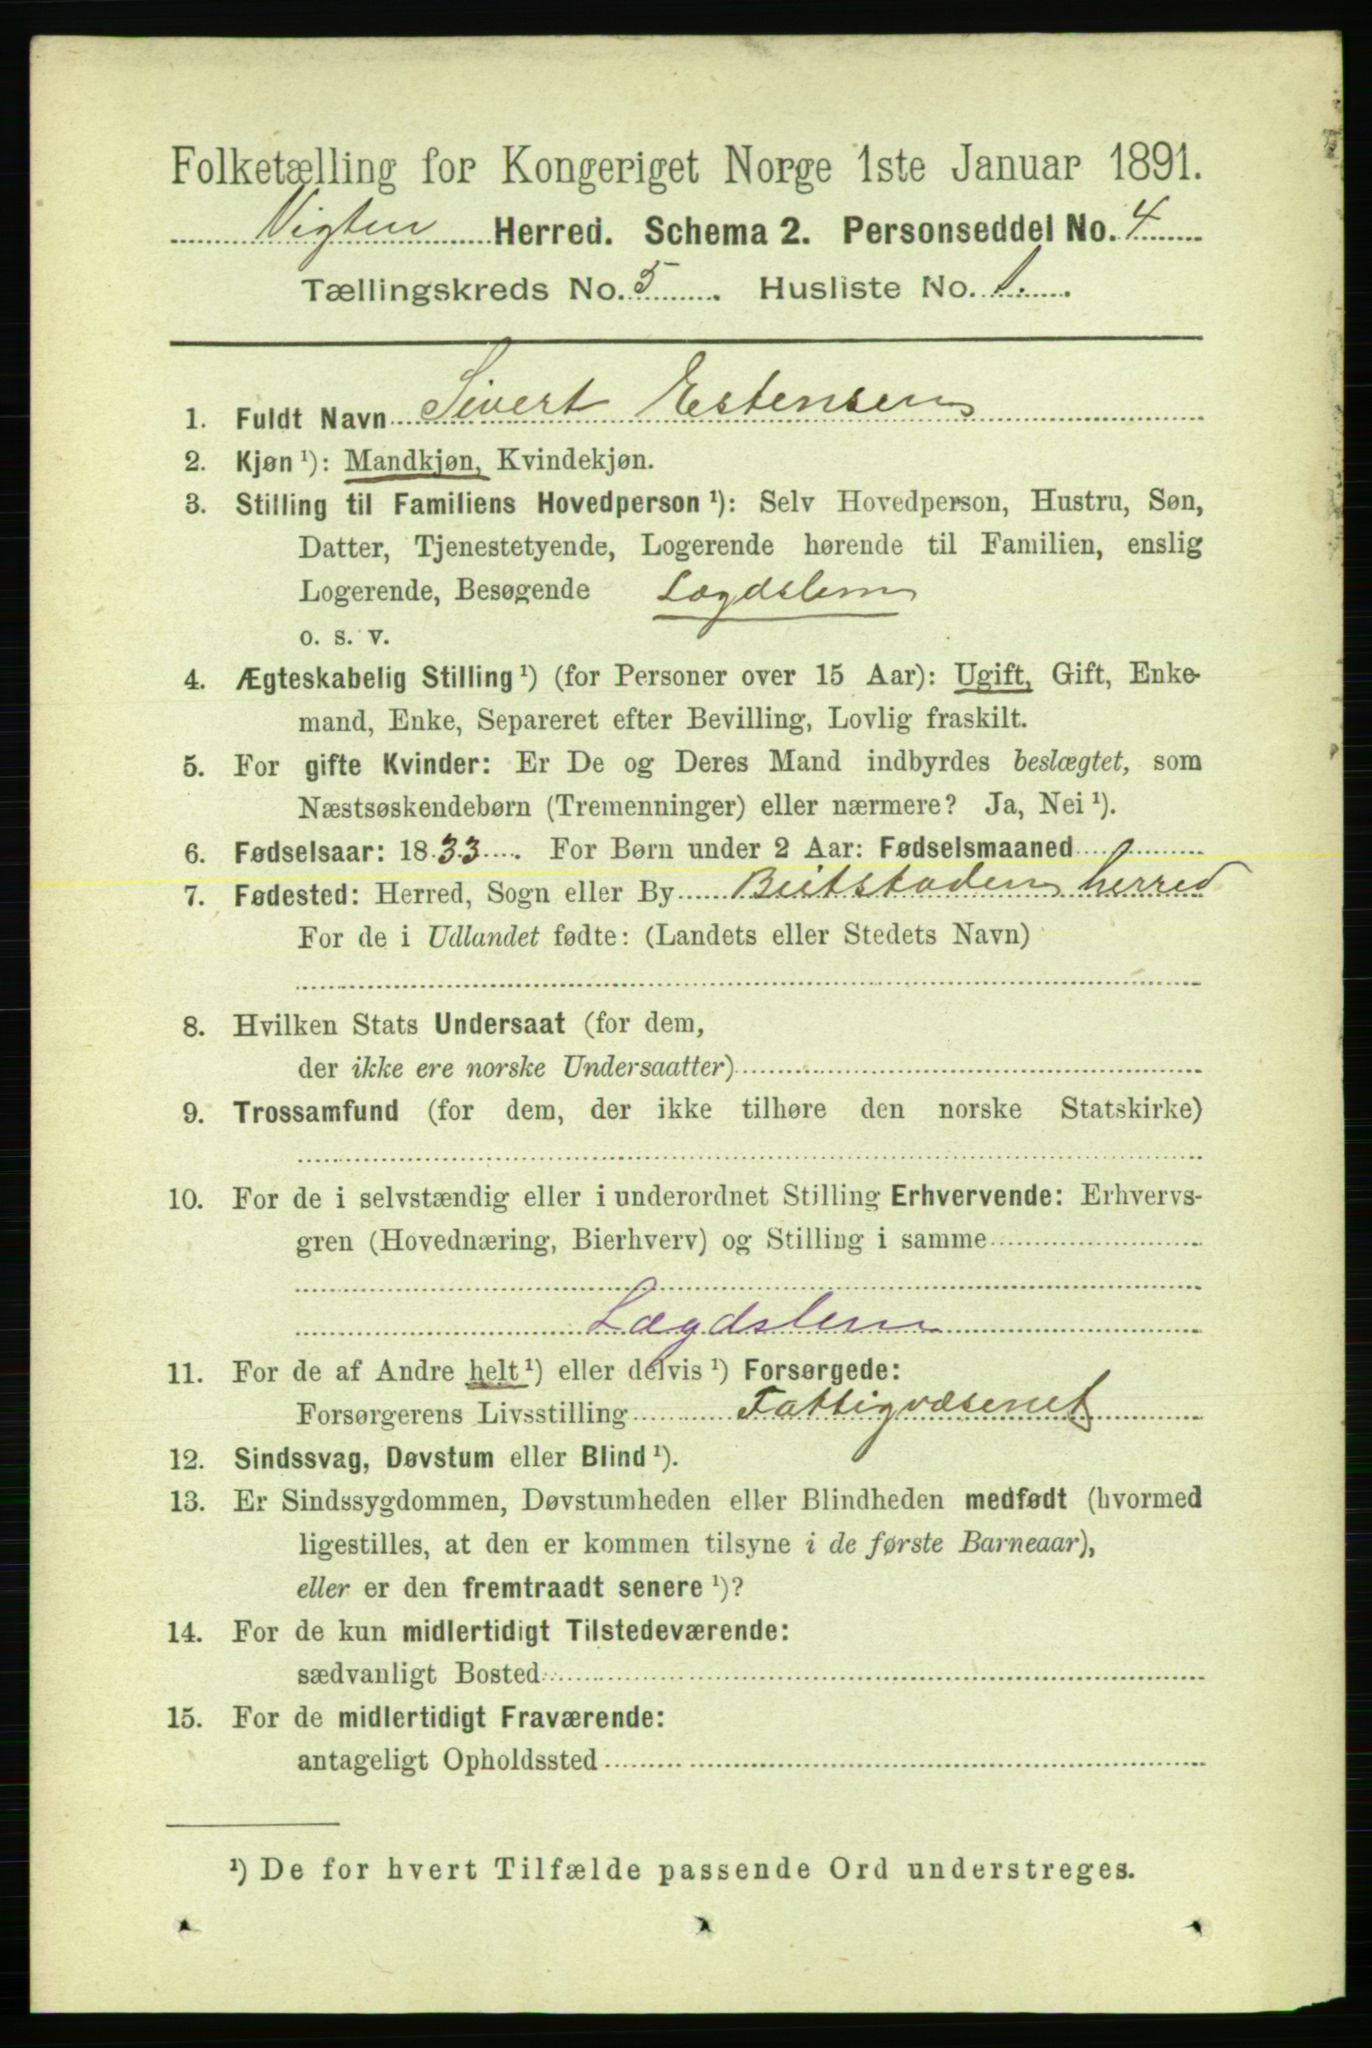 Folketælling for Kongeriget Norge 1ste Januar 1891.
Vigten Herred. Schema 2. Personseddel No. 4
Tællingskreds No. 5. Husliste No. 1.
1. Fuldt Navn Sivert Estensen
2. Kjøn ¹): Mandkjøn, Kvindekjøn.
3. Stilling til Familiens Hovedperson ¹): Selv Hovedperson, Hustru, Søn,
Datter, Tjenestetyende, Logerende hørende til Familien, enslig
Logerende, Besøgende Lægdslem
o. s. v.
4. Ægteskabelig Stilling ¹) (for Personer over 15 Aar): Ugift, Gift, Enke-
mand, Enke, Separeret efter Bevilling, Lovlig fraskilt.
5. For gifte Kvinder: Er De og Deres Mand indbyrdes beslægtet, som
Næstsøskendebørn (Tremenninger) eller nærmere? Ja, Nei ¹).
6. Fødselsaar: 1833. For Børn under 2 Aar: Fødselsmaaned
7. Fødested: Herred, Sogn eller By Beitstaden herred
For de i Udlandet fødte: (Landets eller Stedets Navn)
8. Hvilken Stats Undersaat (for dem,
der ikke ere norske Undersaatter)
9. Trossamfund (for dem, der ikke tilhøre den norske Statskirke)
10. For de i selvstændig eller i underordnet Stilling Erhvervende: Erhvervs-
gren (Hovednæring, Bierhverv) og Stilling i samme
Lægdslem
11. For de af Andre helt ¹) eller delvis ¹) Forsørgede:
Forsørgerens Livsstilling Fattigvæsenet
12. Sindssvag, Døvstum eller Blind ¹).
13. Er Sindssygdommen, Døvstumheden eller Blindheden medfødt (hvormed
ligestilles, at den er kommen tilsyne i de første Barneaar),
eller er den fremtraadt senere ¹)?
14. For de kun midlertidigt Tilstedeværende:
sædvanligt Bosted
15. For de midlertidigt Fraværende:
antageligt Opholdssted
¹) De for hvert Tilfælde passende Ord understreges.